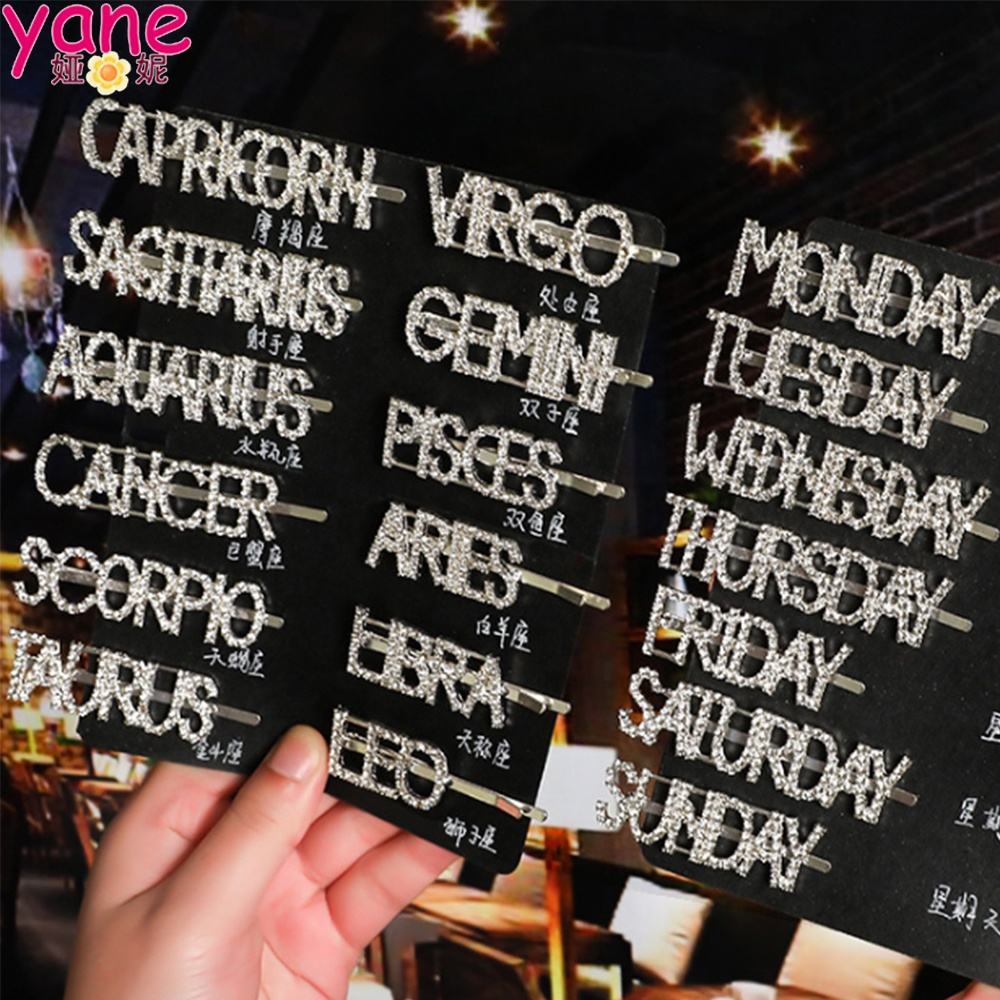 yane
娅妮
CAPRICORN
摩羯座
SAGITTARIUS
射手座
AQUARIUS
水瓶座
CANCER
巨蟹座
SCORPIO
天蝎座
TAURUS
金牛座
VIRGO
处女座
GEMINI
双子座
PISCES
双鱼座
ARIES
白羊座
LIBRA
天秤座
LEO
狮子座
MONDAY
TUESDAY
WEDNESDAY
THURSDAY
FRIDAY
SATURDAY
SUNDAY
星期
星期天